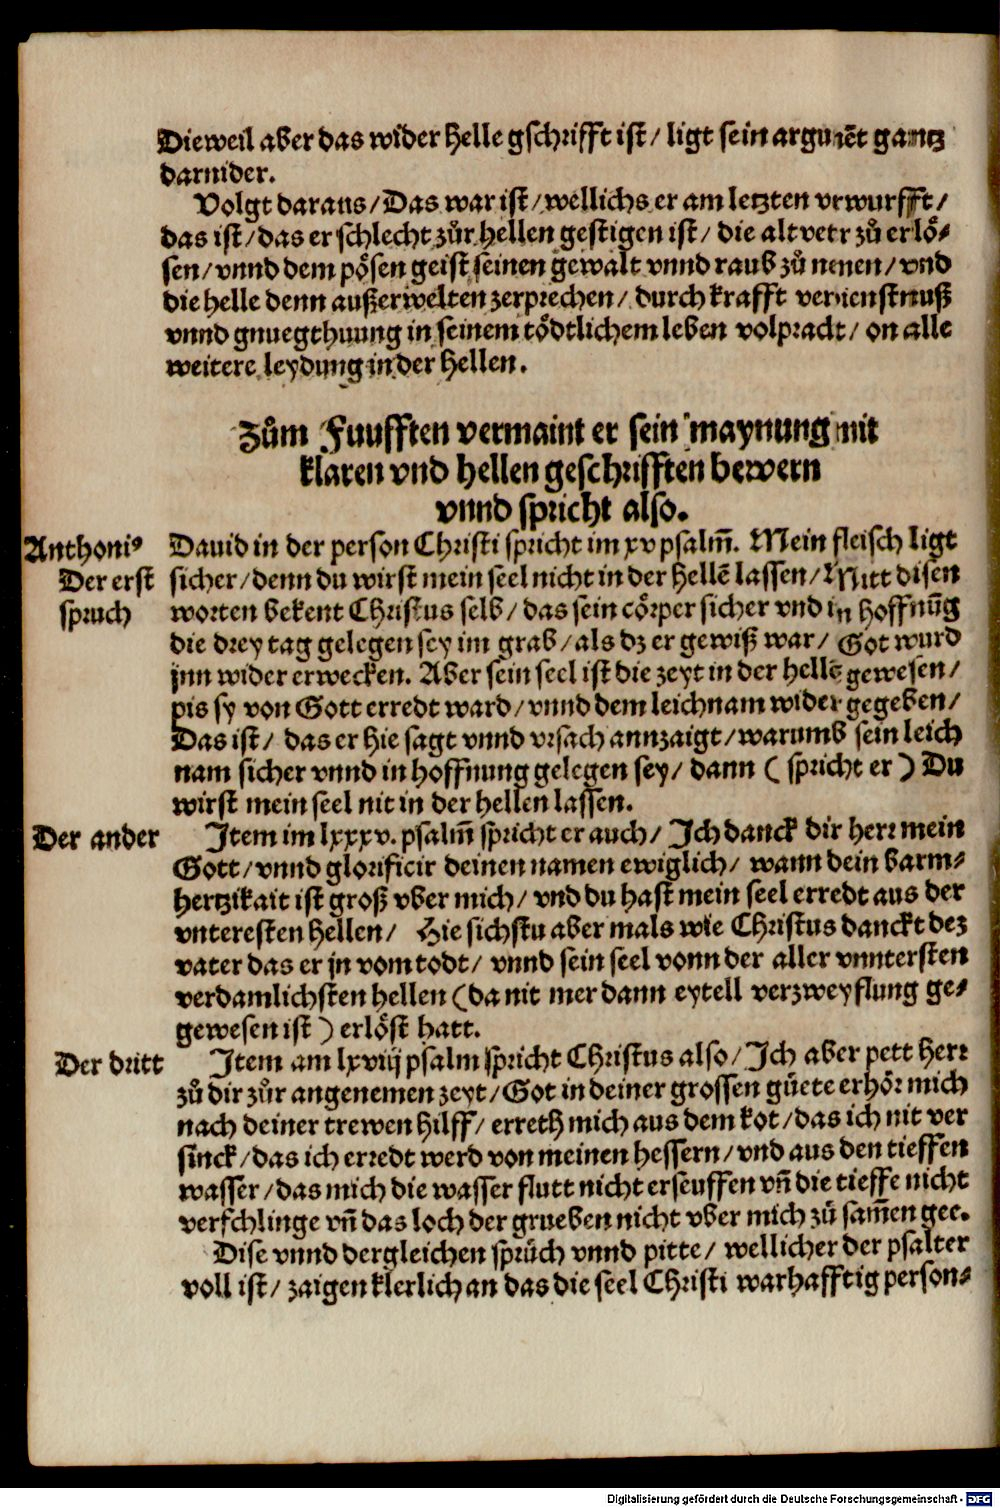 Dieweil aber das wider helle gschrifft ist/ ligt sein argumēt gantz
darnider.
Volgt daraus/ Das war ist/ wellichs er am letzten vrwurfft/
das ist/ das er schlecht zůr hellen gestigen ist/ die altvetr zů erlö-
sen/ vnnd dem pösen geist seinen gewalt vnnd raub zů nemen/ vnd
die helle denn außerwelten zerprechen/ durch krafft verdienstnuß
vnnd gnuegthuung in seinem tödtlichem leben volpracht/ on alle
weitere leydung in der hellen.
Zům Fuufften vermaint er sein maynung mit
klaren vnd hellen geschrifften bewern
vnnd spricht also.
Anthoniꝰ
Der erst
spruch
Dauid in der person Christi spricht im xv psalm̄. Mein fleisch ligt
sicher/ denn du wirst mein seel nicht in der hellē lassen/ Mitt disen
worten bekent Christus selb/ das sein cörper sicher vnd in hoffnūg
die drey tag gelegen sey im grab/ als dz er gewiß war/ Got wurd
jnn wider erwecken. Aber sein seel ist die zeyt in der hellē gewesen/
pis sy von Gott erredt ward/ vnnd dem leichnam wider gegeben/
Das ist/ das er hie sagt vnnd vrsach annzaigt/ warumb sein leich
nam sicher vnnd in hoffnung gelegen sey/ dann ( spricht er ) Du
wirst mein seel nit in der hellen lassen.
Der ander
Item im lxxxv. psalm̄ spricht er auch/ Ich danck dir herr mein
Gott/ vnnd glorificir deinen namen ewiglich/ wann dein barm-
hertzikait ist groß vber mich/ vnd du hast mein seel erredt aus der
vnteresten hellen/ Hie sichstu aber mals wie Christus danckt dez
vater das er jn vom todt/ vnnd sein seel vonn der aller vnntersten
verdamlichsten hellen (da nit mer dann eytell verzweyflung ge-
gewesen ist ) erlöst hatt.
Der dritt
Item am lxviij psalm spricht Christus also/ Ich aber pett herr
zů dir zůr angenemen zeyt/ Got in deiner grossen güete erhör mich
nach deiner trewen hilff/ erreth mich aus dem kot/ das ich nit ver
sinck/ das ich erredt werd von meinen hessern/ vnd aus den tieffen
wasser/ das mich die wasser flutt nicht erseuffen vn̄ die tieffe nicht
verschlinge vn̄ das loch der grueben nicht vber mich zů sam̄en gee.
Dise vnnd dergleichen sprüch vnnd pitte/ wellicher der psalter
voll ist/ zaigen klerlich an das die seel Christi warhafftig person-
Digitalisierung gefördert durch die Deutsche Forschungsgemeinschaft - DFG